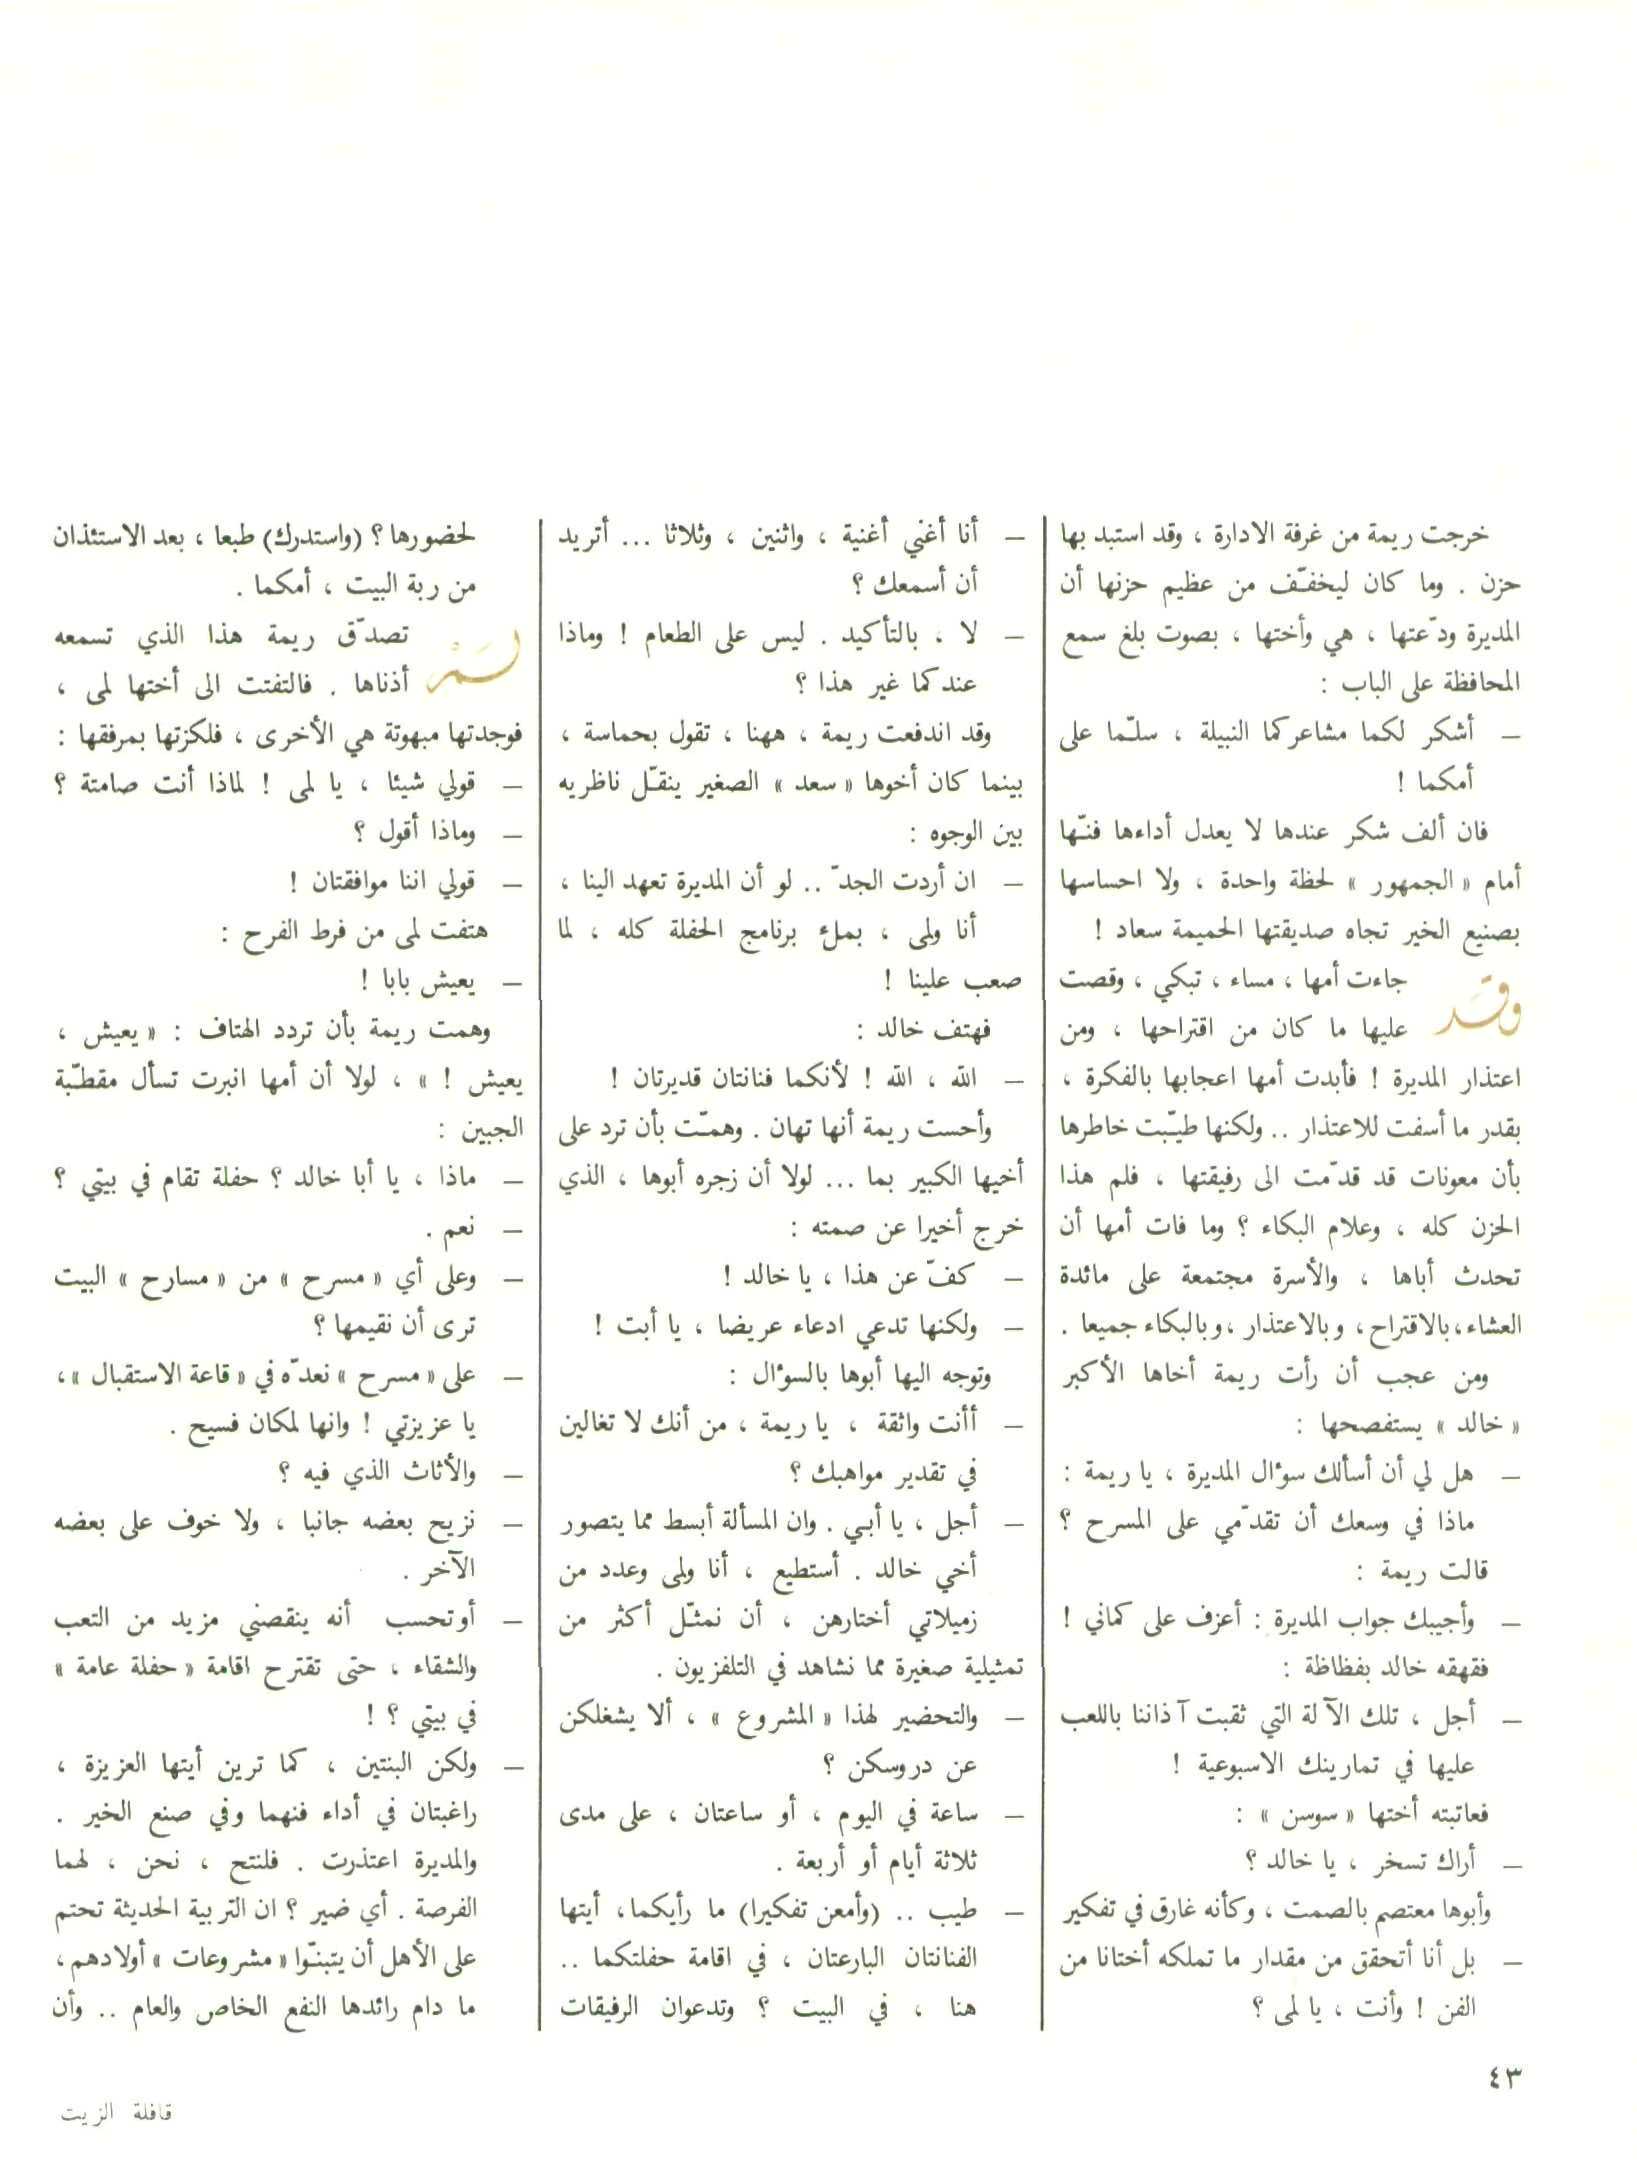 خرجت ريمة من غرفة الادارة ، وقد استبد بها
حزن . وما كان ليخفّف من عظيم حزنها أن
المديرة ودّعتها ، هي وأختها ، بصوت بلغ سمع
المحافظة على الباب :
— أشكر لكما مشاعركما النبيلة ، سلّما على
أمكما !
فان ألف شكر عندها لا يعدل أداءها فنّها
أمام « الجمهور » لحظة واحدة ، ولا احساسها
بصنيع الخير تجاه صديقتها الحميمة سعاد !
وقد جاءت أمها ، مساء ، تبكي ، وقصت
عليها ما كان من اقتراحها ، ومن
اعتذار المديرة ! فأبدت أمها اعجابها بالفكرة ،
بقدر ما أسفت للاعتذار .. ولكنها طيّبت خاطرها
بأن معونات قد قدّمت الى رفيقتها ، فلم هذا
الحزن كله ، وعلام البكاء ؟ وما فات أمها أن
تحدث أباها ، والأسرة مجتمعة على مائدة
العشاء، بالاقتراح، وبالاعتذار ، وبالبكاء جميعا .
ومن عجب أن رأت ريمة أخاها الأكبر
« خالد » يستفصحها :
— هل لي أن أسألك سؤال المديرة ، يا ريمة :
ماذا في وسعك أن تقدّمي على المسرح ؟
قالت ريمة :
— وأجيبك جواب المديرة : أعزف على كماني !
فقهقه خالد بفظاظة :
— أجل ، تلك الآلة التي ثقبت آذاننا باللعب
عليها في تمارينك الاسبوعية !
فعاتبته أختها « سوسن » :
— أراك تسخر ، يا خالد ؟
وأبوها معتصم بالصمت ، وكأنه غارق في تفكير
— بل أنا أتحقق من مقدار ما تملكه أختانا من
الفن ! وأنت ، يا لمى ؟
— أنا أغني أغنية ، واثنين ، وثلاثا ... أتريد
أن أسمعك ؟
— لا ، بالتأكيد . ليس على الطعام ! وماذا
عندكما غير هذا ؟
وقد اندفعت ريمة ، ههنا ، تقول بحماسة ،
بينما كان أخوها « سعد » الصغير ينقّل ناظريه
بين الوجوه :
— ان أردت الجدّ .. لو أن المديرة تعهد الينا ،
أنا ولمى ، بملء برنامج الحفلة كله ، لما
صعب علينا !
فهتف خالد :
— الله ، الله ! لأنكما فنانتان قديرتان !
وأحست ريمة أنها تهان . وهمّت بأن ترد على
أخيها الكبير بما ... لولا أن زجره أبوها ، الذي
خرج أخيرا عن صمته :
— كفّ عن هذا ، يا خالد !
— ولكنها تدعي ادعاء عريضا ، يا أبت !
وتوجه اليها أبوها بالسؤال :
— أأنت واثقة ، يا ريمة ، من أنك لا تغالين
في تقدير مواهبك ؟
— أجل ، يا أبي . وان المسألة أبسط مما يتصور
أخي خالد . أستطيع ، أنا ولمى وعدد من
زميلاتي أختارهن ، أن نمثّل أكثر من
تمثيلية صغيرة مما نشاهد في التلفزيون .
— والتحضير لهذا « المشروع » ، ألا يشغلكن
عن دروسكن ؟
— ساعة في اليوم ، أو ساعتان ، على مدى
ثلاثة أيام أو أربعة .
— طيب .. (وأمعن تفكيرا) ما رأيكما، أيتها
الفنانتان البارعتان ، في اقامة حفلتكما ..
هنا ، في البيت ؟ وتدعوان الرفيقات
لحضورها ؟ (واستدرك) طبعا ، بعد الاستئذان
من ربة البيت ، أمكما .
لم تصدّق ريمة هذا الذي تسمعه
أذناها . فالتفتت الى أختها لمى ،
فوجدتها مبهوتة هي الأخرى ، فلكزتها بمرفقها :
— قولي شيئا ، يا لمى ! لماذا أنت صامتة ؟
— وماذا أقول ؟
— قولي اننا موافقتان !
هتفت لمى من فرط الفرح :
— يعيش بابا !
وهمت ريمة بأن تردد الهتاف : « يعيش ،
يعيش ! » ، لولا أن أمها انبرت تسأل مقطّبة
الجبين :
— ماذا ، يا أبا خالد ؟ حفلة تقام في بيتي ؟
— نعم .
— وعلى أي « مسرح » من « مسارح » البيت
ترى أن نقيمها ؟
— على « مسرح » نعدّه في « قاعة الاستقبال »،
يا عزيزتي ! وانها لمكان فسيح .
— والأثاث الذي فيه ؟
— نزيح بعضه جانبا ، ولا خوف على بعضه
الآخر .
— أوتحسب أنه ينقصني مزيد من التعب
والشقاء ، حتى تقترح اقامة « حفلة عامة »
في بيتي ؟ !
— ولكن البنتين ، كما ترين أيتها العزيزة ،
راغبتان في أداء فنهما وفي صنع الخير .
والمديرة اعتذرت . فلنتح ، نحن ، لهما
الفرصة . أي ضير ؟ ان التربية الحديثة تحتم
على الأهل أن يتبنّوا « مشروعات » أولادهم،
ما دام رائدها النفع الخاص والعام .. وأن
٤٣
قافلة الزيت